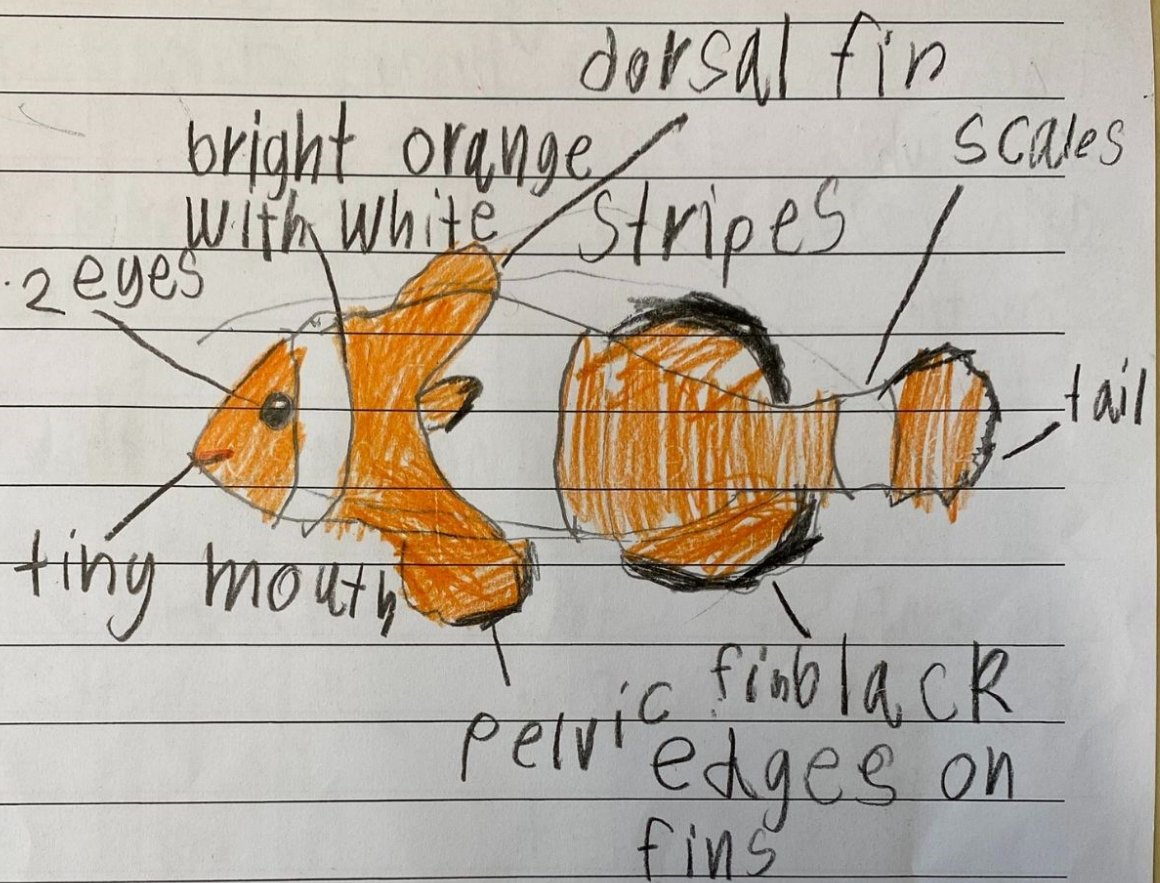 dorsal fin
bright orange
with white stripes
scales
2 eyes
tail
tiny mouth
pelvic fin
black
edges on
fins